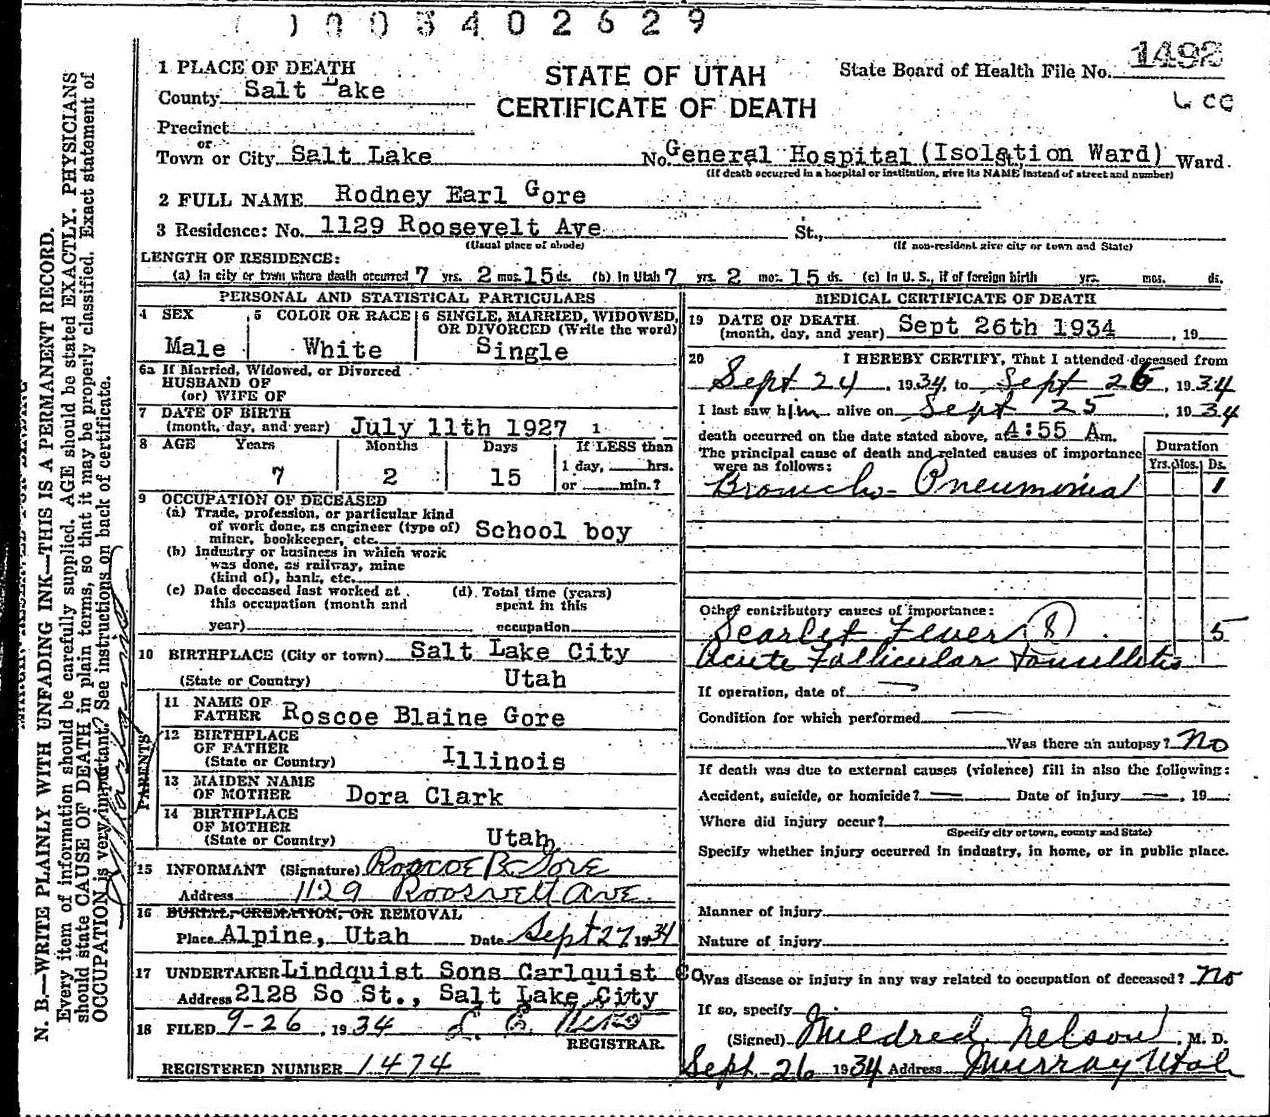 003402629
1 PLACE OF DEATH
County Salt Lake
Precinct
or
Town or City Salt Lake
STATE OF UTAH
CERTIFICATE OF DEATH
State Board of Health File No. 1492
No. General Hospital (Isolation Ward) Ward.
(If death occurred in a hospital or institution, give its NAME instead of street and number)
2 FULL NAME Rodney Earl Gore
3 Residence: No. 1129 Roosevelt Ave St.,
(Usual place of abode) (If non-resident give city or town and State)
LENGTH OF RESIDENCE:
(a) In city or town where death occurred 7 yrs. 2 mos. 15 ds. (b) In Utah 7 yrs. 2 mos. 15 ds. (c) In U. S., if of foreign birth yrs. mos. ds.
PERSONAL AND STATISTICAL PARTICULARS
4 SEX
Male
5 COLOR OR RACE
White
6 SINGLE, MARRIED, WIDOWED,
OR DIVORCED (Write the word)
Single
6a If Married, Widowed, or Divorced
HUSBAND OF
(or) WIFE OF
7 DATE OF BIRTH
(month, day, and year) July 11th 1927
8 AGE Years Months Days If LESS than
7 2 15 1 day, hrs.
or min.?
9 OCCUPATION OF DECEASED
(a) Trade, profession, or particular kind
of work done, as engineer (type of)
miner, bookkeeper, etc. School boy
(b) Industry or business in which work
was done, as railway, mine
(kind of), bank, etc.
(c) Date deceased last worked at
this occupation (month and
year)
(d) Total time (years)
spent in this
occupation
10 BIRTHPLACE (City or town) Salt Lake City
(State or Country) Utah
PARENTS
11 NAME OF
FATHER Roscoe Blaine Gore
12 BIRTHPLACE
OF FATHER
(State or Country) Illinois
13 MAIDEN NAME
OF MOTHER Dora Clark
14 BIRTHPLACE
OF MOTHER
(State or Country) Utah
15 INFORMANT (Signature) Roscoe B. Gore
Address 1129 Roosvelt Ave.
16 BURIAL, CREMATION, OR REMOVAL
Place Alpine, Utah Date Sept 27 1934
17 UNDERTAKER Lindquist Sons Carlquist Co
Address 2128 So St., Salt Lake City
18 FILED 9-26, 1934
REGISTRAR.
REGISTERED NUMBER 1474
MEDICAL CERTIFICATE OF DEATH
19 DATE OF DEATH
(month, day, and year) Sept 26th 1934, 19
20 I HEREBY CERTIFY, That I attended deceased from
Sept 24, 1934, to Sept 26, 1934
I last saw him alive on Sept 25, 1934
death occurred on the date stated above, at 4:55 Am.
The principal cause of death and related causes of importance
were as follows:
Duration
Yrs. Mos. Ds.
Broncho-Pneumonia 1
Other contributory causes of importance:
Scarlet Fever (8) 5
Acute Follicular Tonsillitis
If operation, date of
Condition for which performed
Was there an autopsy? No
If death was due to external causes (violence) fill in also the following:
Accident, suicide, or homicide? Date of injury , 19
Where did injury occur?
(Specify city or town, county and State)
Specify whether injury occurred in industry, in home, or in public place.
Manner of injury
Nature of injury
Was disease or injury in any way related to occupation of deceased? No
If so, specify
(Signed) Mildred Nelson, M. D.
Sept. 26 1934 Address Murray Utah
N. B.—WRITE PLAINLY WITH UNFADING INK—THIS IS A PERMANENT RECORD.
Every item of information should be carefully supplied. AGE should be stated EXACTLY. PHYSICIANS
should state CAUSE OF DEATH in plain terms, so that it may be properly classified. Exact statement of
OCCUPATION is very important. See instructions on back of certificate.